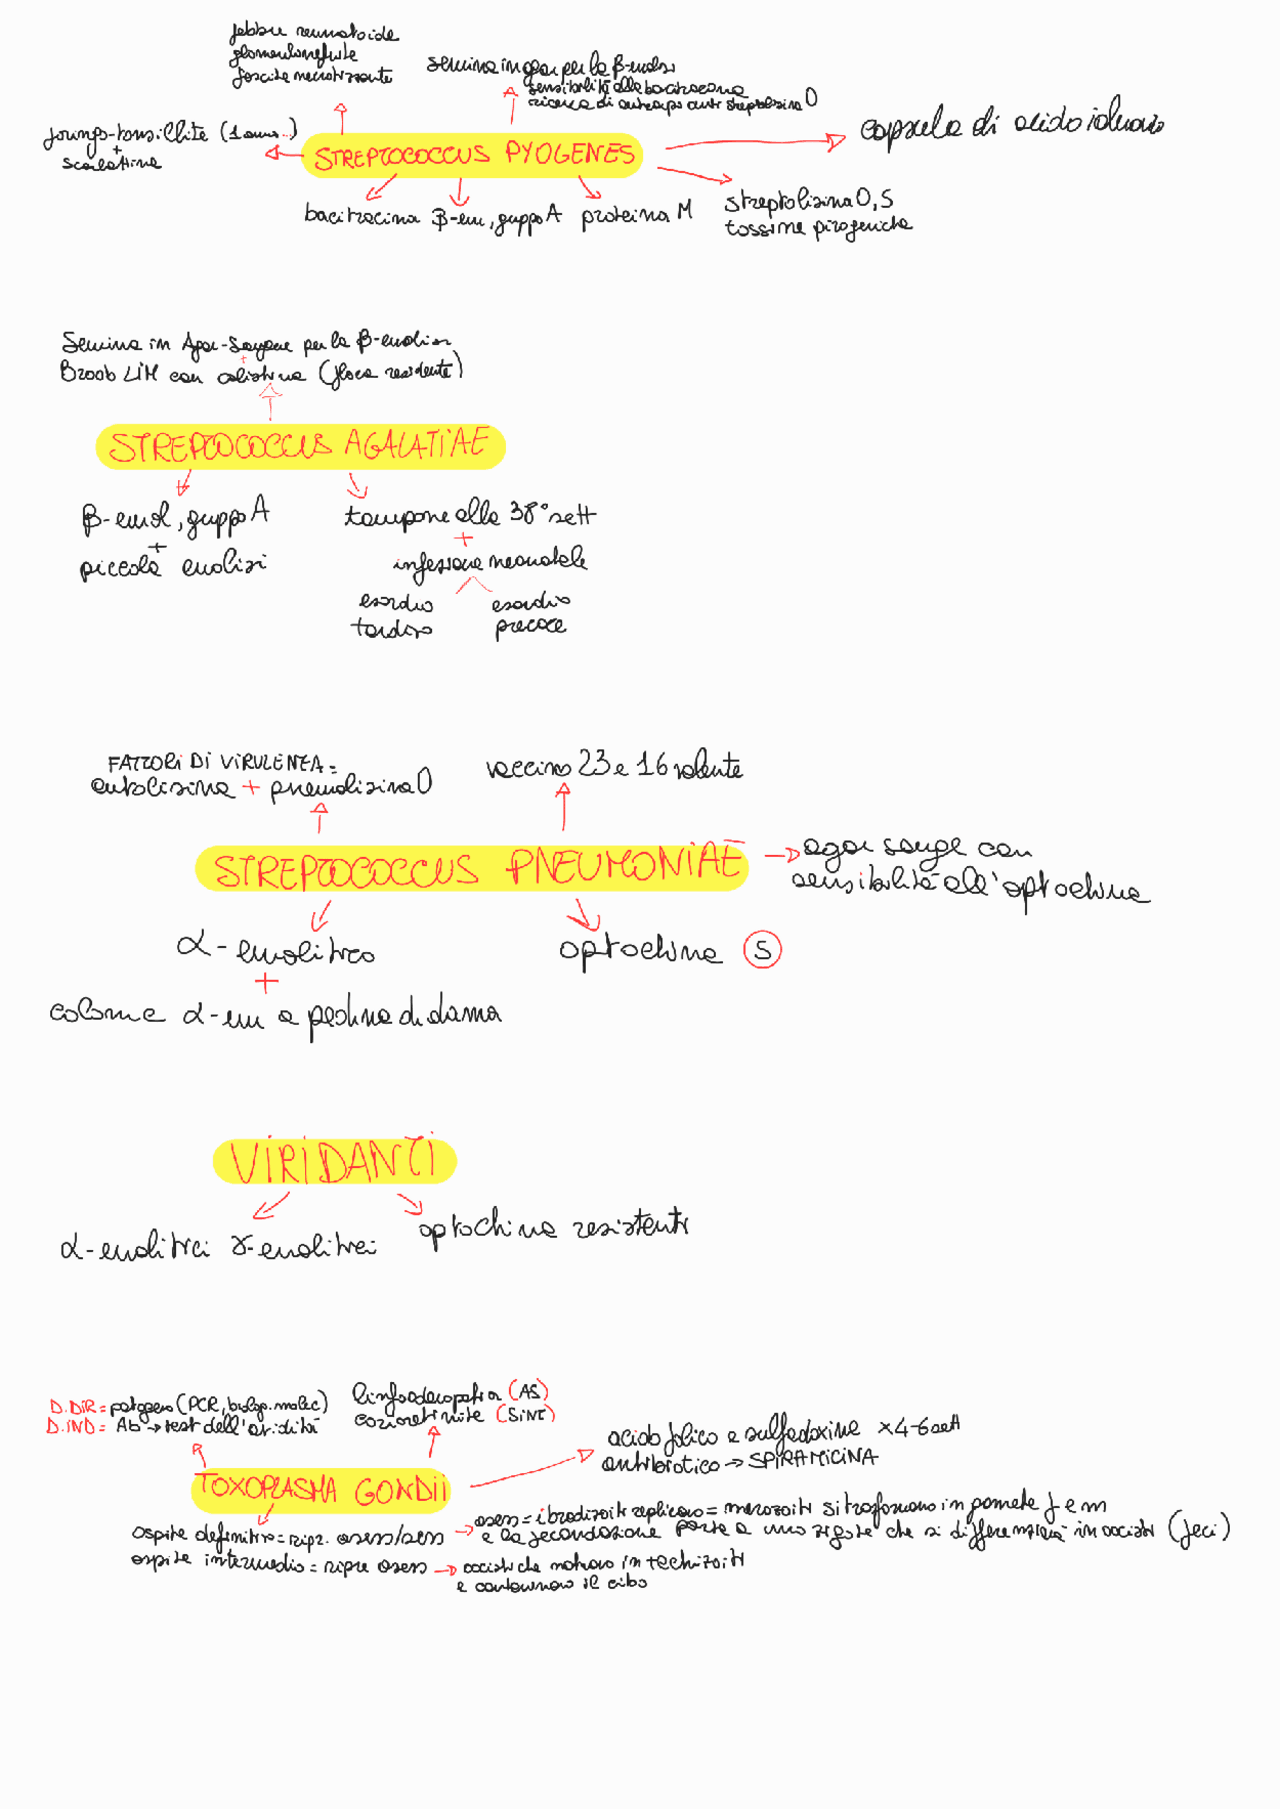 febbre reumatoide
glomerulonefrite
fascite necrotizzante
semina in agar per la β-emolisi
sensibilità alla bacitracina
ricerca di anticorpi anti streptolisina O
faringo-tonsillite (1 anno...)
+
scarlattina
STREPTOCOCCUS PYOGENES
capsula di acido ialuronico
bacitracina
β-em, gruppo A
proteina M
streptolisina O, S
tossine pirogeniche
Semina in Agar-Sangue per la β-emolisi
+
Broob LIM con colistina (flora residente)
STREPTOCOCCUS AGALATIAE
β-emol, gruppo A
+
piccola emolisi
tampone alla 38° sett
+
infezione neonatale
esordio
tardivo
esordio
precoce
FATTORI DI VIRULENZA =
autolisina + pneumolisina O
vaccino 23 e 16 valente
STREPTOCOCCUS PNEUMONIAE
agar sangue con
sensibilità all'optochina
α-emolitico
+
colonie α-em a pedina di dama
optochina S
VIRIDANTI
α-emolitici γ-emolitici
optochina resistenti
D.DIR = patogeno (PCR, biolog. molec)
D.IND = Ab → test dell'avidità
linfoadenopatia (AS)
corioretinite (SINT)
acido folico e sulfadoxina x 4-6 sett
antibiotico → SPIRAMICINA
TOXOPLASMA GONDII
ospite definitivo = ripr. asess/sess → asess = i bradizoiti replicano = merozoiti si trasformano in gamete f e m
e la fecondazione porta a uno zigote che si differenzierà in oocisti (feci)
ospite intermedio = ripr asess → oocisti che maturano in tachizoiti
e contaminano il cibo